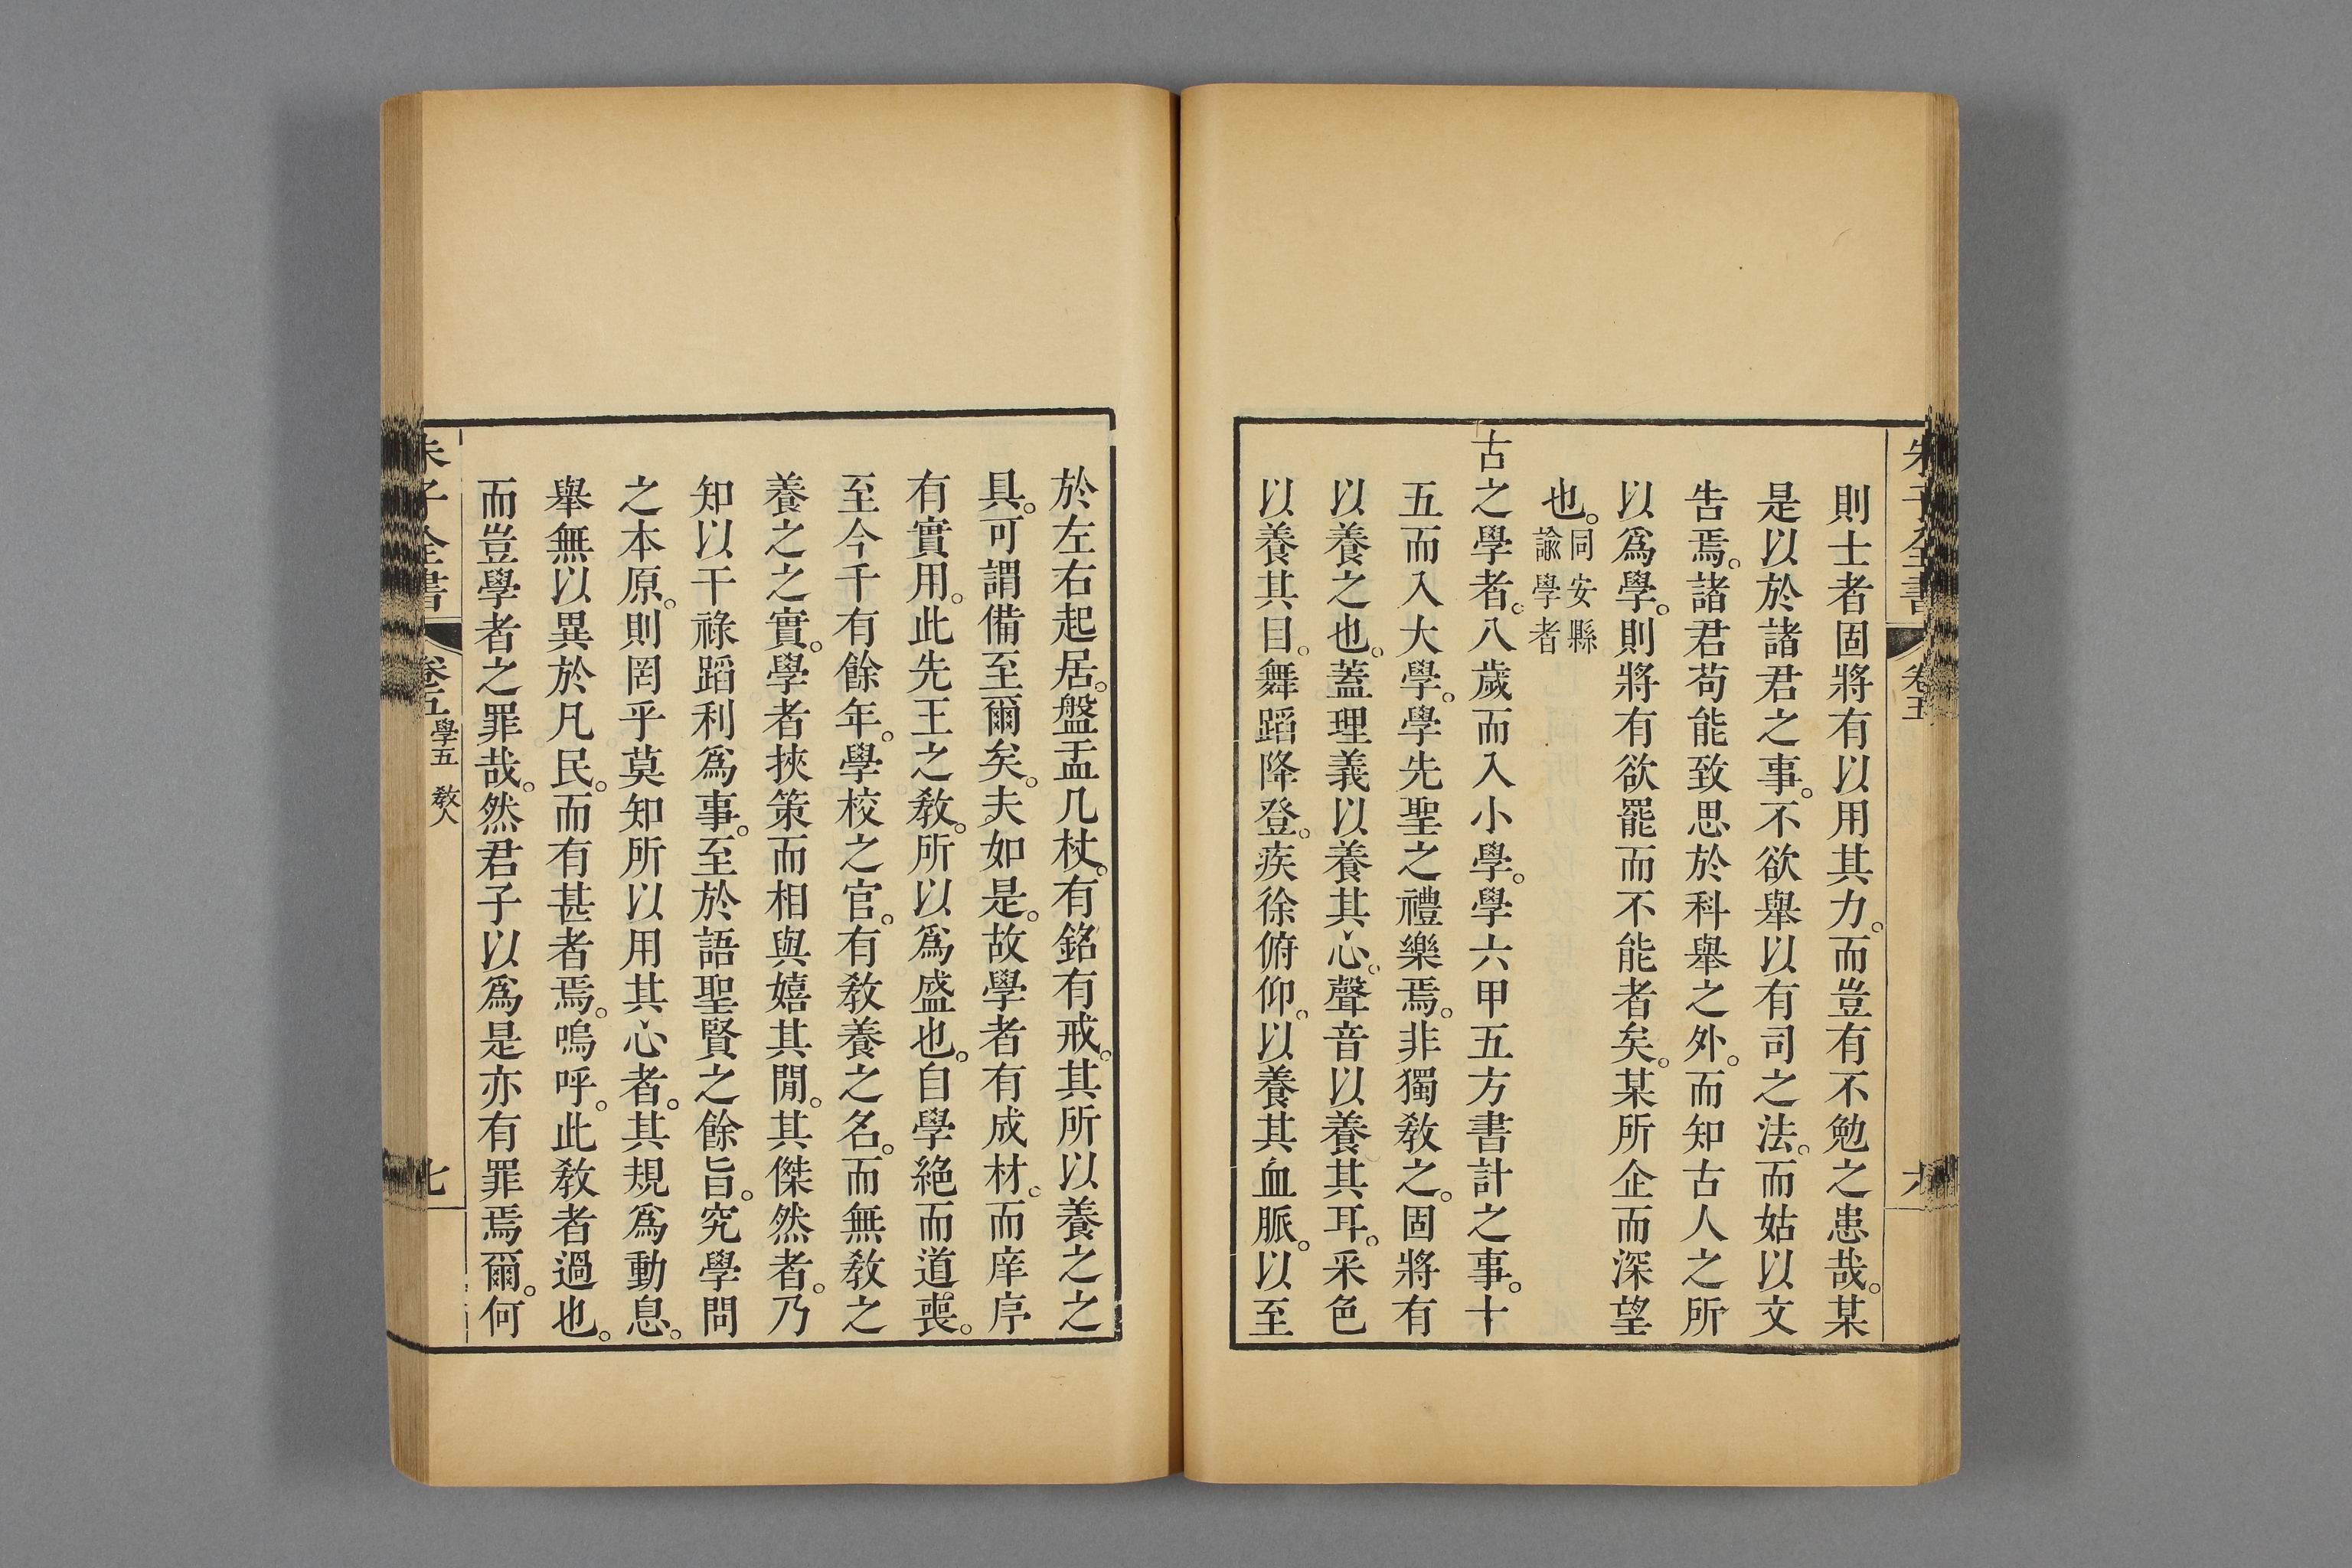 朱子全書 卷五 六
則士者固將有以用其力。而豈有不勉之患哉。某
是以於諸君之事。不欲舉以有司之法。而姑以文
告焉。諸君苟能致思於科舉之外。而知古人之所
以爲學。則將有欲罷而不能者矣。某所企而深望
也。同安縣諭學者
古之學者。八歲而入小學。學六甲五方書計之事。十
五而入大學。學先聖之禮樂焉。非獨敎之。固將有
以養之也。蓋理義以養其心。聲音以養其耳。采色
以養其目。舞蹈降登。疾徐俯仰。以養其血脈。以至
於左右起居。盤盂几杖。有銘有戒。其所以養之之
具。可謂備至爾矣。夫如是。故學者有成材。而庠序
有實用。此先王之敎。所以爲盛也。自學絕而道喪。
至今千有餘年。學校之官。有敎養之名。而無敎之
養之之實。學者挾策而相與嬉其閒。其傑然者。乃
知以干祿蹈利爲事。至於語聖賢之餘旨。究學問
之本原。則罔乎莫知所以用其心者。其規爲動息。
舉無以異於凡民。而有甚者焉。嗚呼。此敎者過也。
而豈學者之罪哉。然君子以爲是亦有罪焉爾。何
朱子全書 卷五 學五 敎人 七